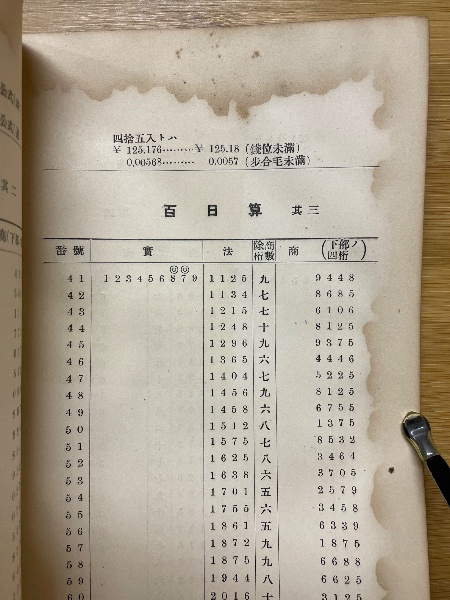 四捨五入トハ
¥ 125.176………¥ 125.18 (錢位未滿)
0.00568……… 0.0057 (步合毛未滿)
百日算 其三
番號 實 法 除商桁數 商 (下部ノ四桁)
41 123456879 1125 九 9448
42 1134 七 8685
43 1215 七 6106
44 1248 十 8125
45 1296 九 9375
46 1365 六 4446
47 1404 七 5225
48 1456 九 8125
49 1458 六 6755
50 1512 八 1375
51 1575 七 8532
52 1625 八 3464
53 1638 六 3705
54 1701 五 2579
55 1755 六 3458
56 1861 五 6339
57 1872 九 1875
58 1875 九 6688
59 1944 八 6625
60 2016 十 3125